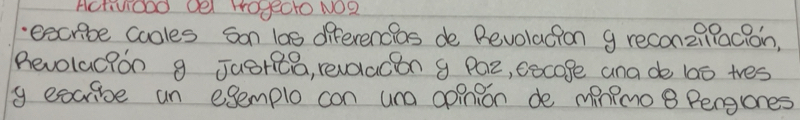 Actividad del Proyecto NO2
•escribe cuales son las diferencias de Revolacion y reconziliación,
Revolución y Justicia, revolación y Paz, escoje una de las tres
y escribe un ejemplo con una opinión de minimo 8 Renglones